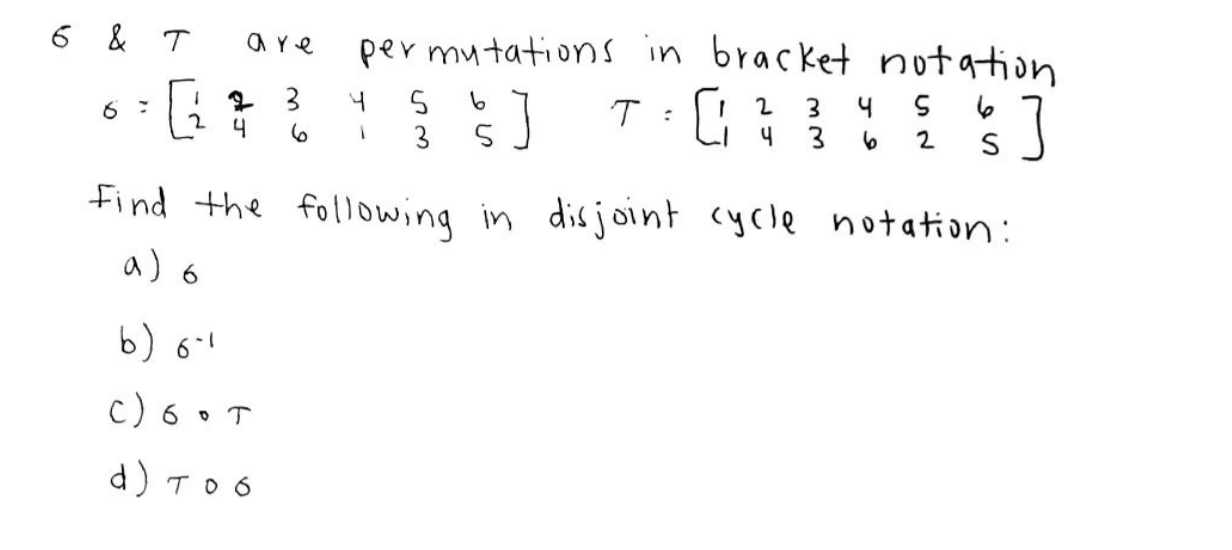 6 & T are permutations in bracket notation
6 = [1 2 3 4 5 6 T = [1 2 3 4 5 6
2 4 6 1 3 5] 1 4 3 6 2 5]
Find the following in disjoint cycle notation:
a) 6
b) 6⁻¹
c) 6 ∘ T
d) T ∘ 6